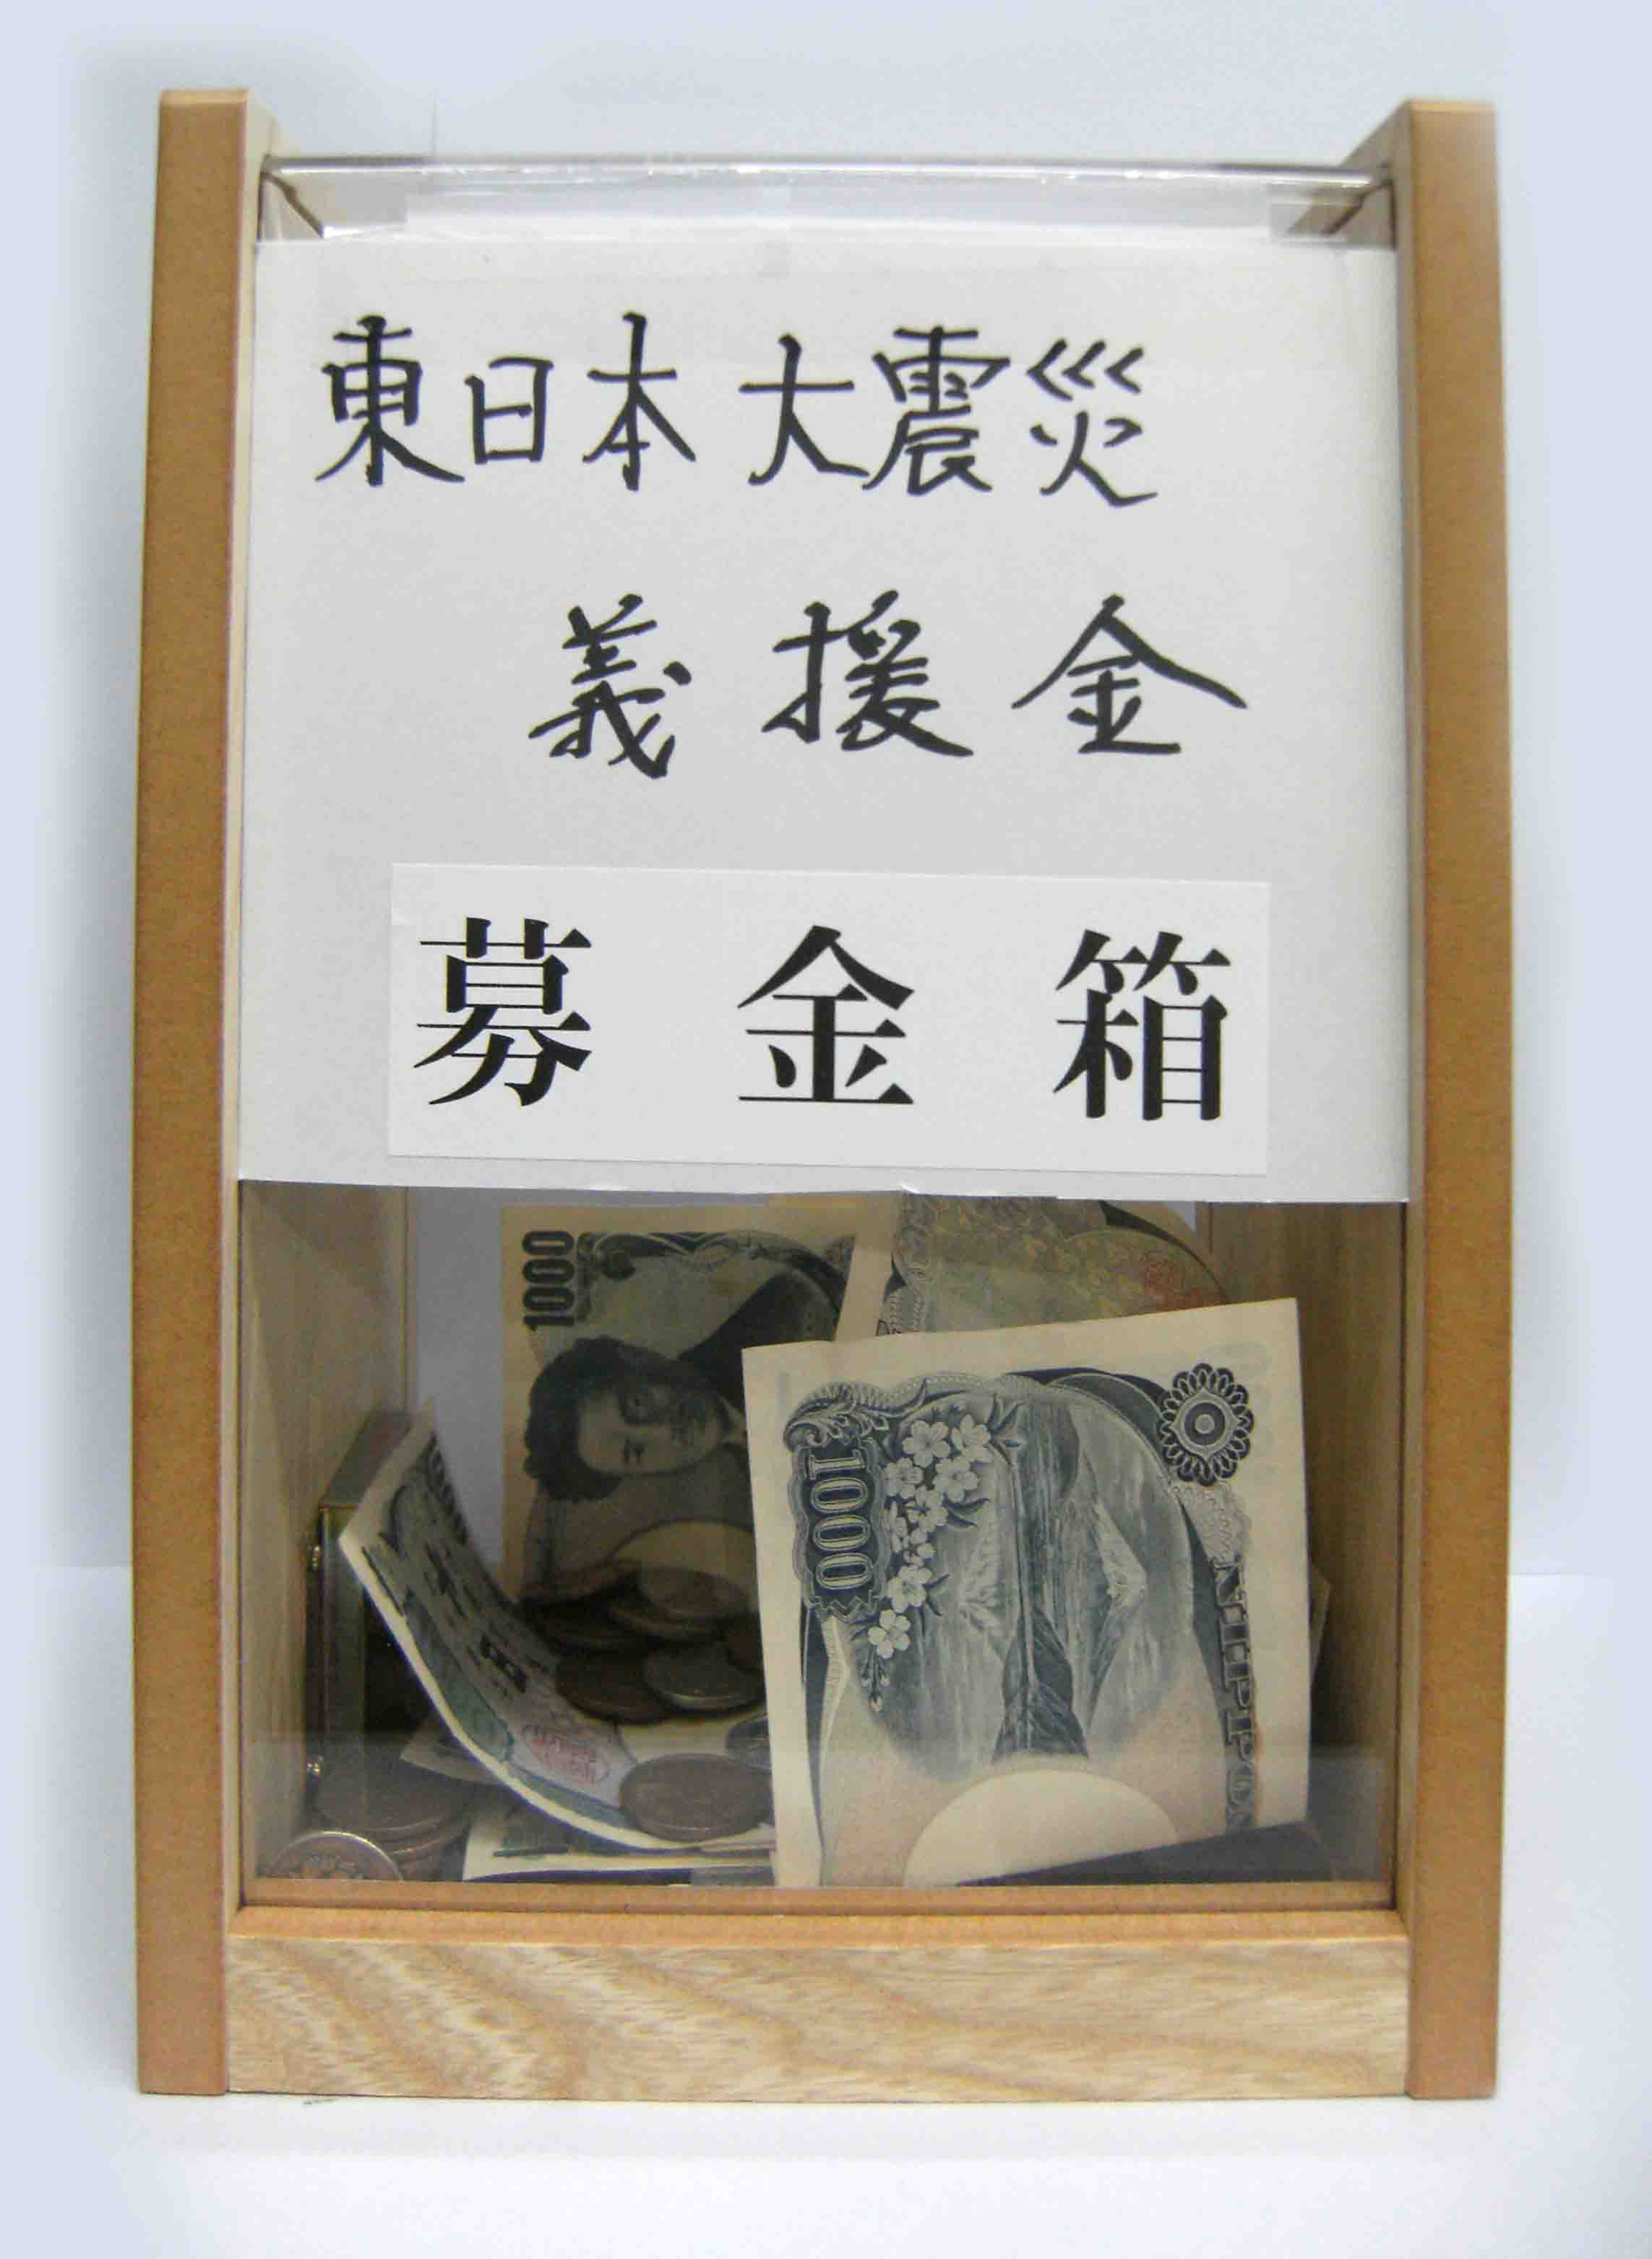 東日本大震災
義援金
募金箱
1000
1000
NIPPON